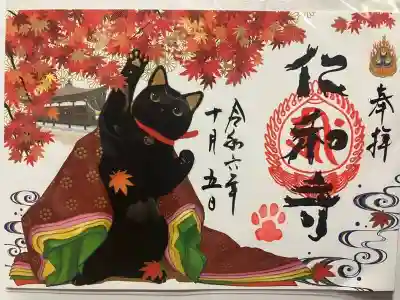 奉拝
仁和寺
令和六年
十月五日